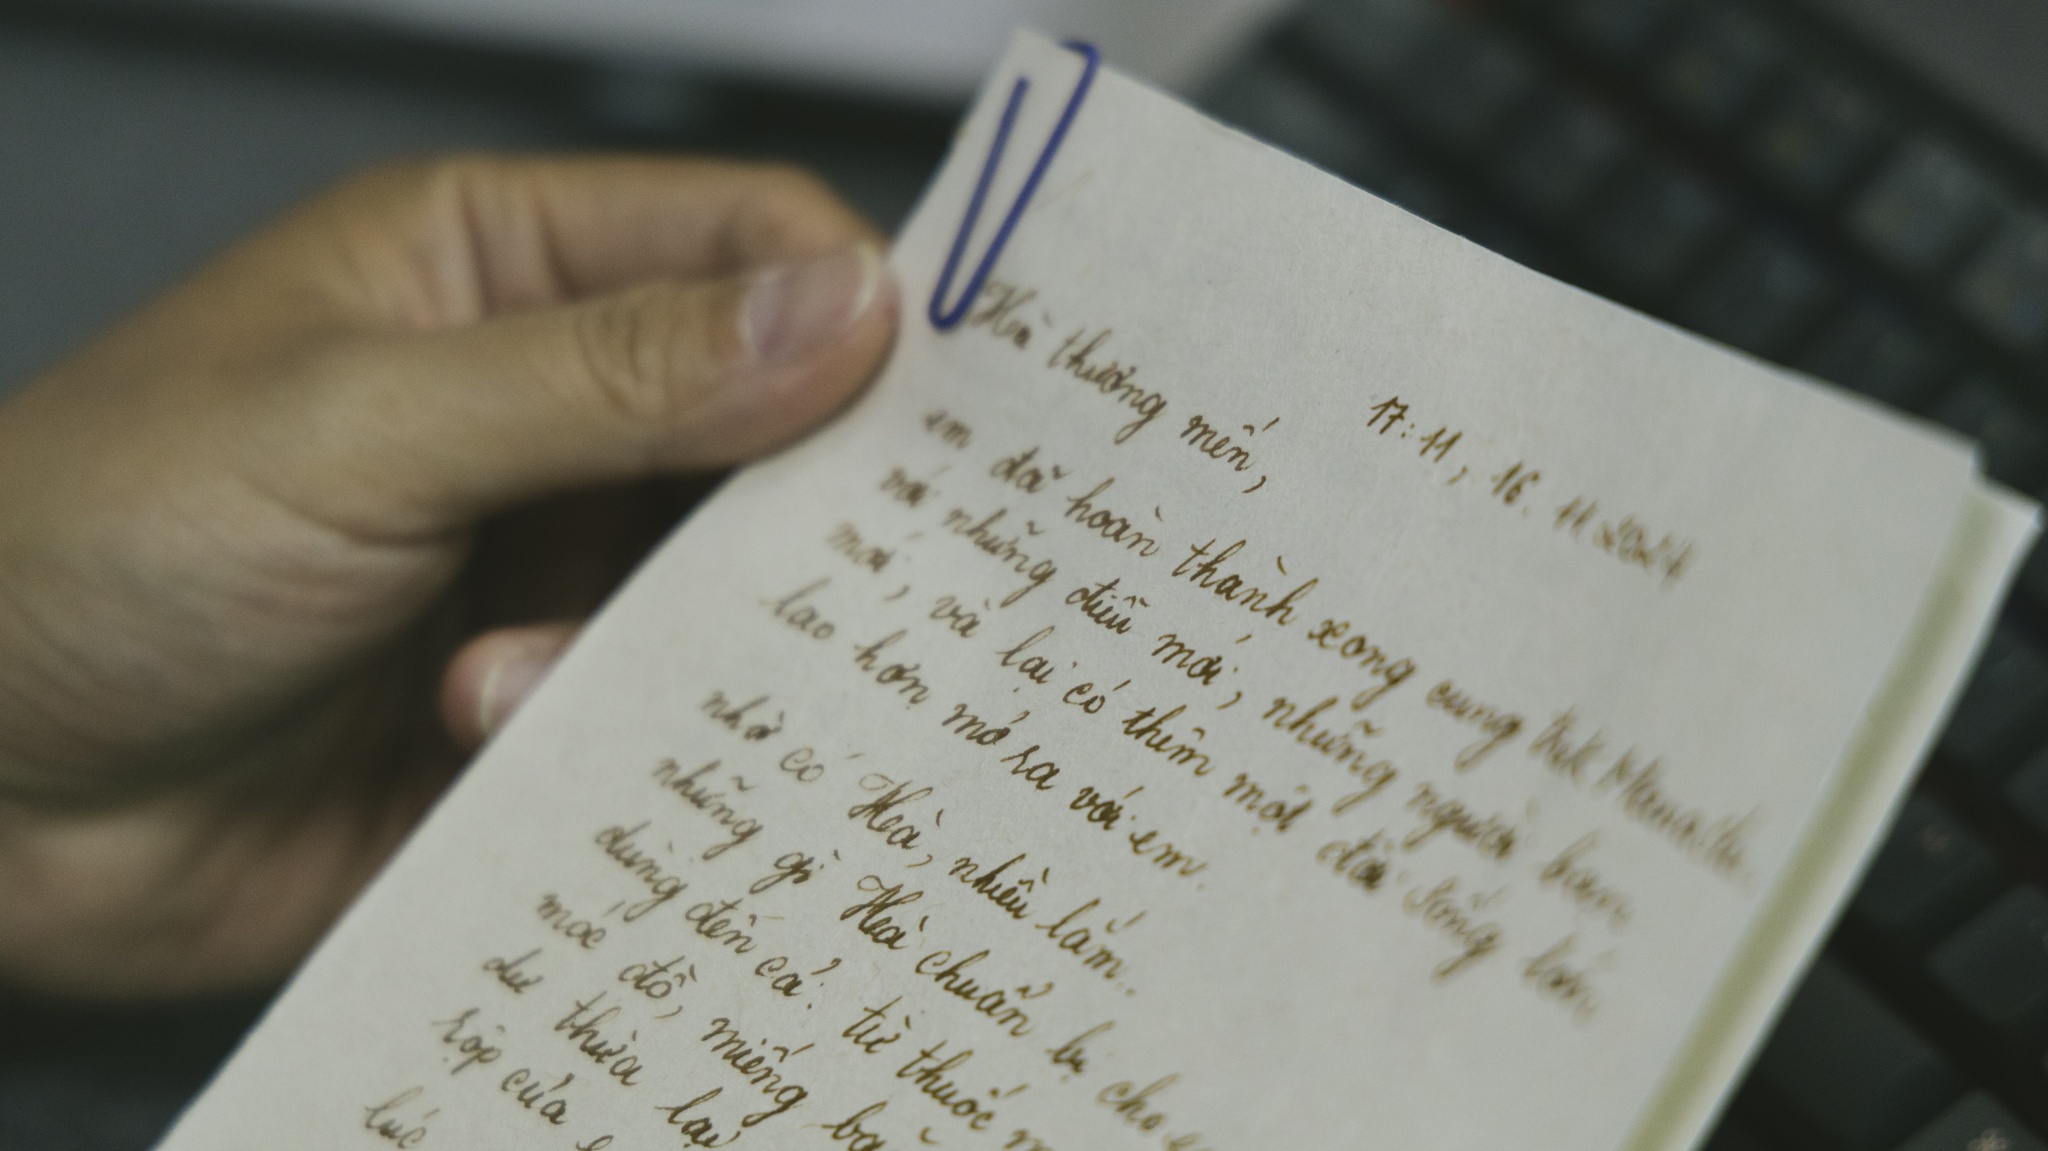 Hoà thương mến,
17:11, 16.11.2024
em đã hoàn thành xong cung
với những điều mới, những người bạn
mới, và lại có thêm một đời sống lớn
lao hơn mở ra với em.
nhờ có Hoà, nhiều lắm..
những gì Hoà chuẩn bị cho
dùng đến cả: từ thuốc
móc đồ, miếng
dư thừa lại
rộp của
lúc